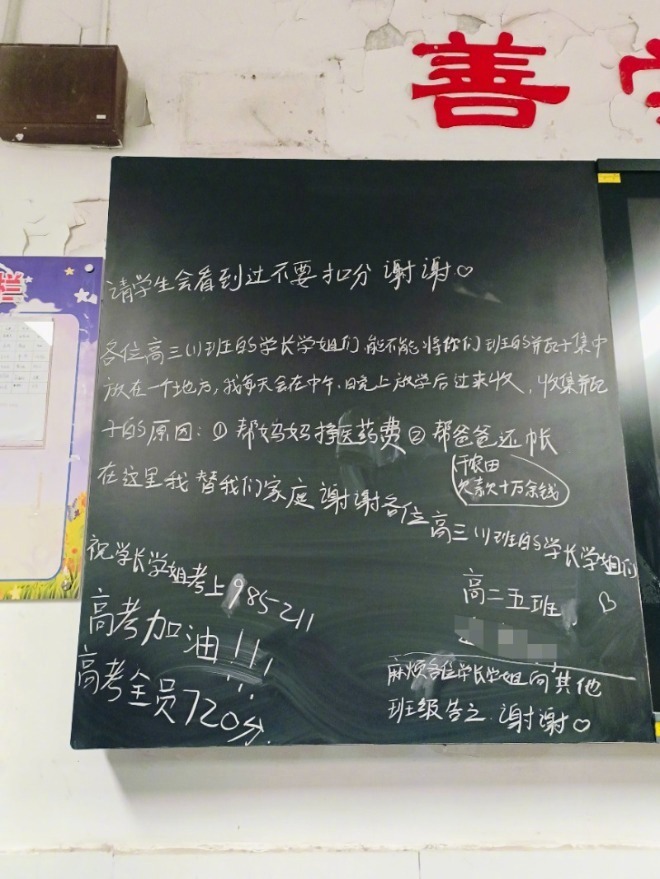 善学
栏
请学生会看到过不要扣分 谢谢♡
各位高三(1)班的学长学姐们,能不能将你们班的瓶子集中
放在一个地方,我每天会在中午、晚上放学后过来收,收集瓶
子的原因:① 帮妈妈挣医药费 ② 帮爸爸还帐
干农田
欠款十万余钱
在这里我替我们家庭谢谢各位高三(1)班的学长学姐们
祝学长学姐考上985 211
高二五班 ♡
高考加油!!!
高考全员720分.
麻烦各位学长学姐向其他
班级告之 谢谢♡